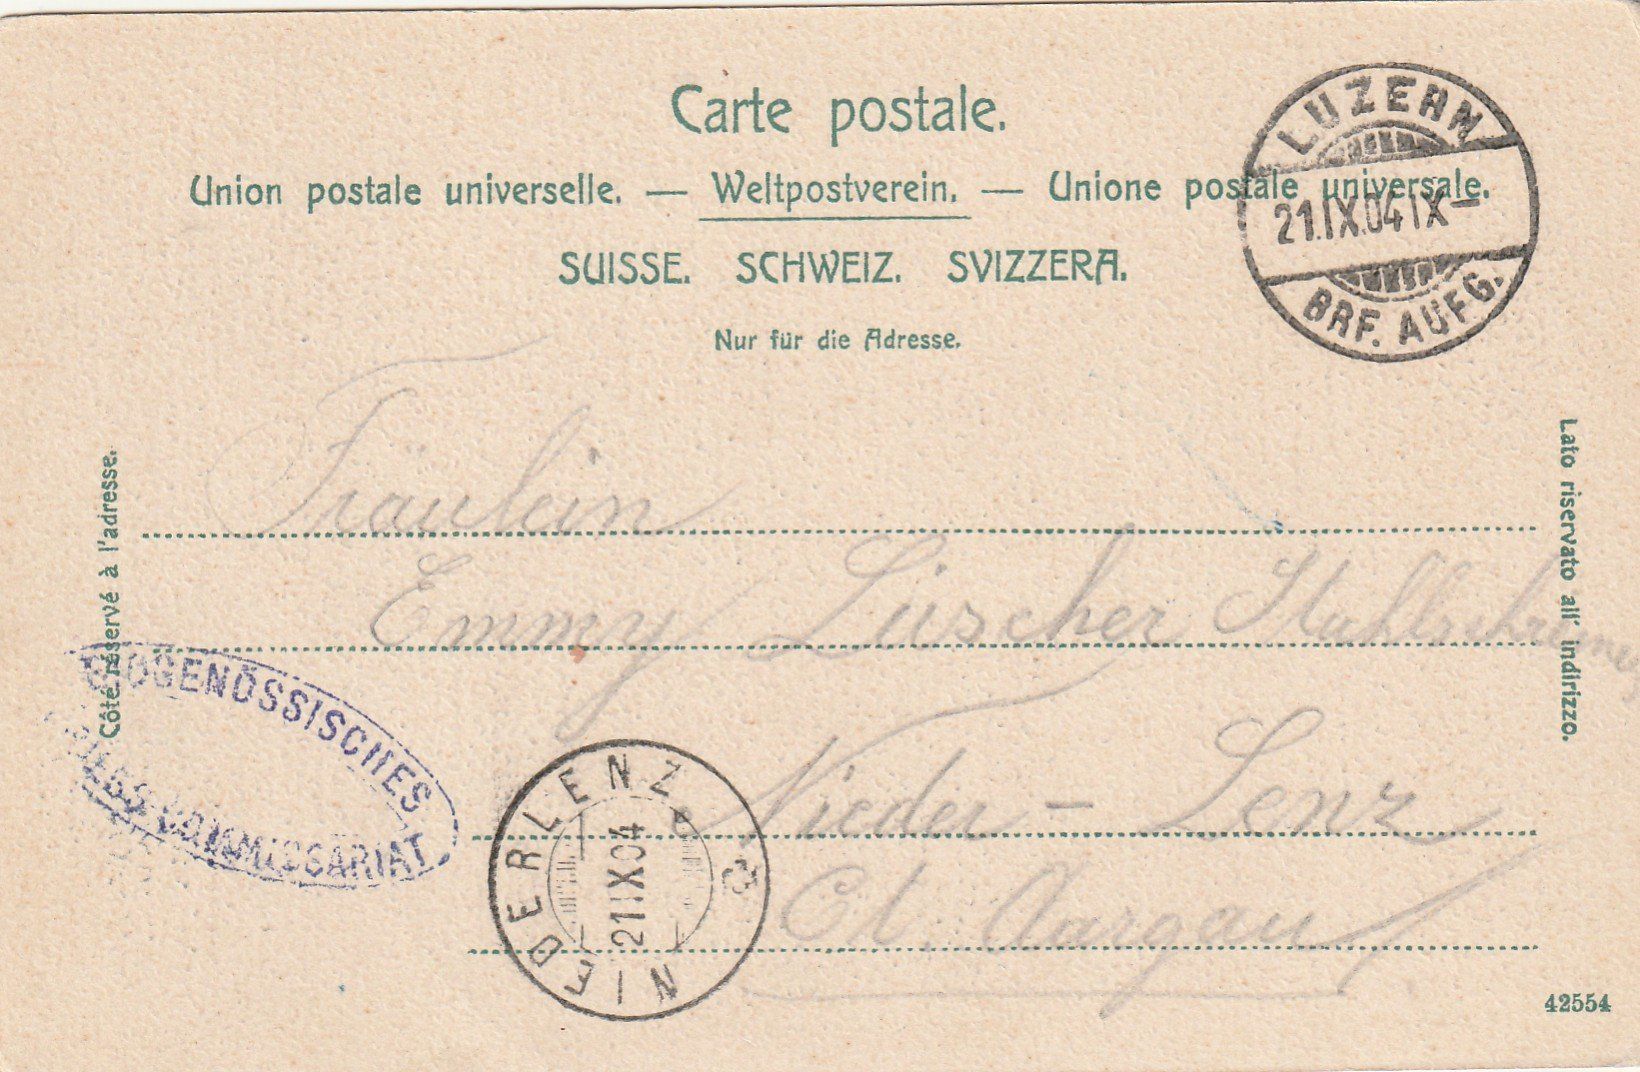 Carte postale.
Union postale universelle. — Weltpostverein. — Unione postale universale.
SUISSE. SCHWEIZ. SVIZZERA.
Nur für die Adresse.
LUZERN
21.IX.04 IX—
BRF. AUFG.
Côté réservé à l'adresse.
Lato riservato all' indirizzo.
Fräulein
Emmy Lüscher
Nieder-Lenz
Ct. Aargau
EIDGENÖSSISCHES
KRIEGS-COMMISSARIAT.
NIEDERLENZ
21 IX 04
42554